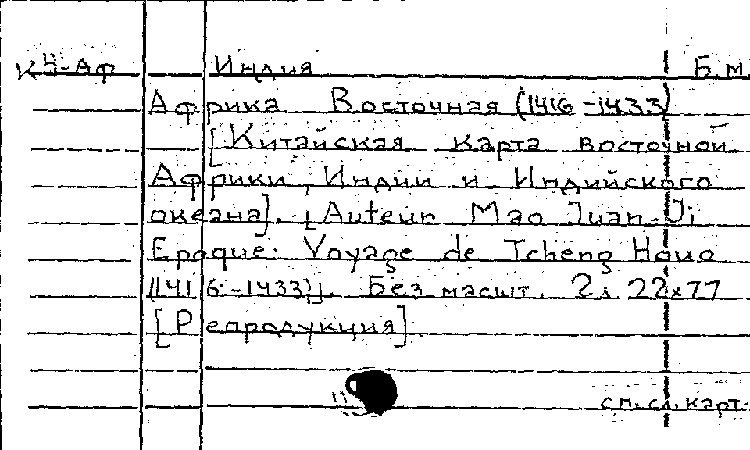 К5-Аф Индия Б.м.
Африка Восточная (1416-1433)
[Китайская карта восточной
Африки, Индии и Индийского
океана]. [Auteur Mao Juan-Ji
Epoque: Voyage de Tcheng Houo
(1416-1433)]. Без масшт. 2л. 22х77
[Репродукция].
см. сл. карт.